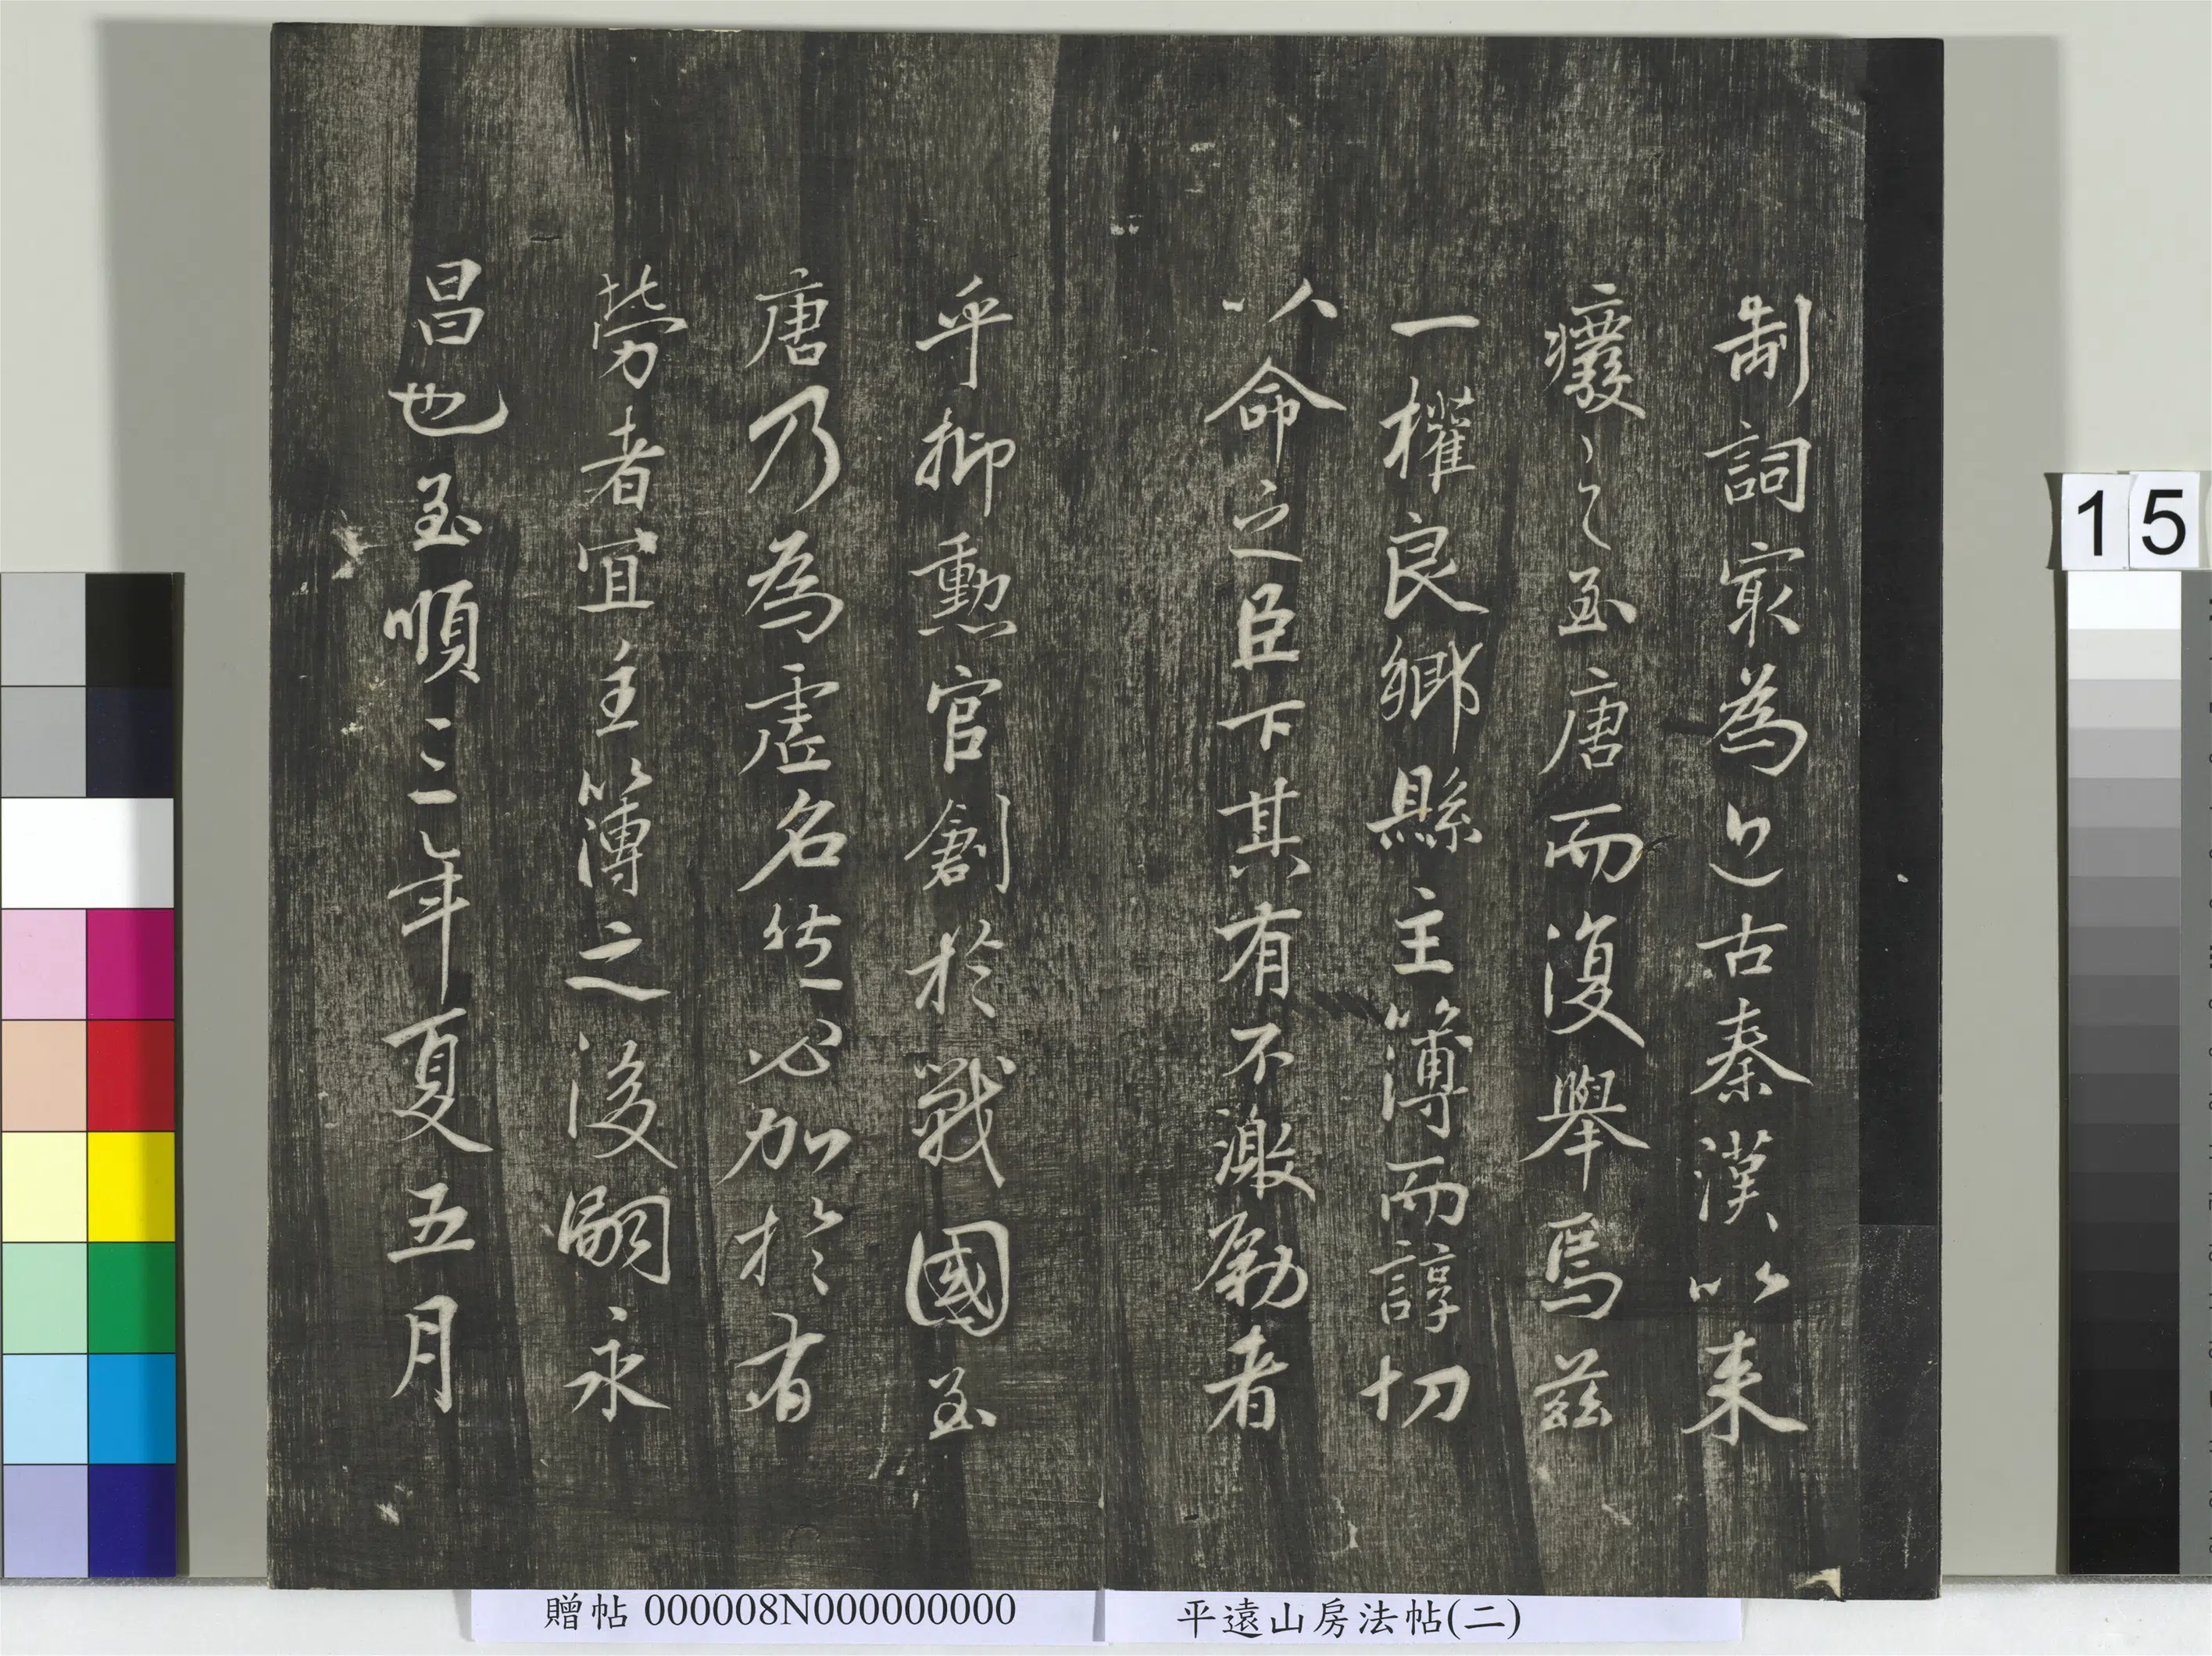 制詞家為近古秦漢以來
癈之至唐而復舉焉茲
一擢良鄉縣主簿而諄切
以命之臣下其有不激勵者
乎抑勳官創於戰國至
唐乃為虛名然必加於有
勞者宜主簿之後嗣永
昌也至順三年夏五月
15
贈帖 000008N000000000
平遠山房法帖(二)